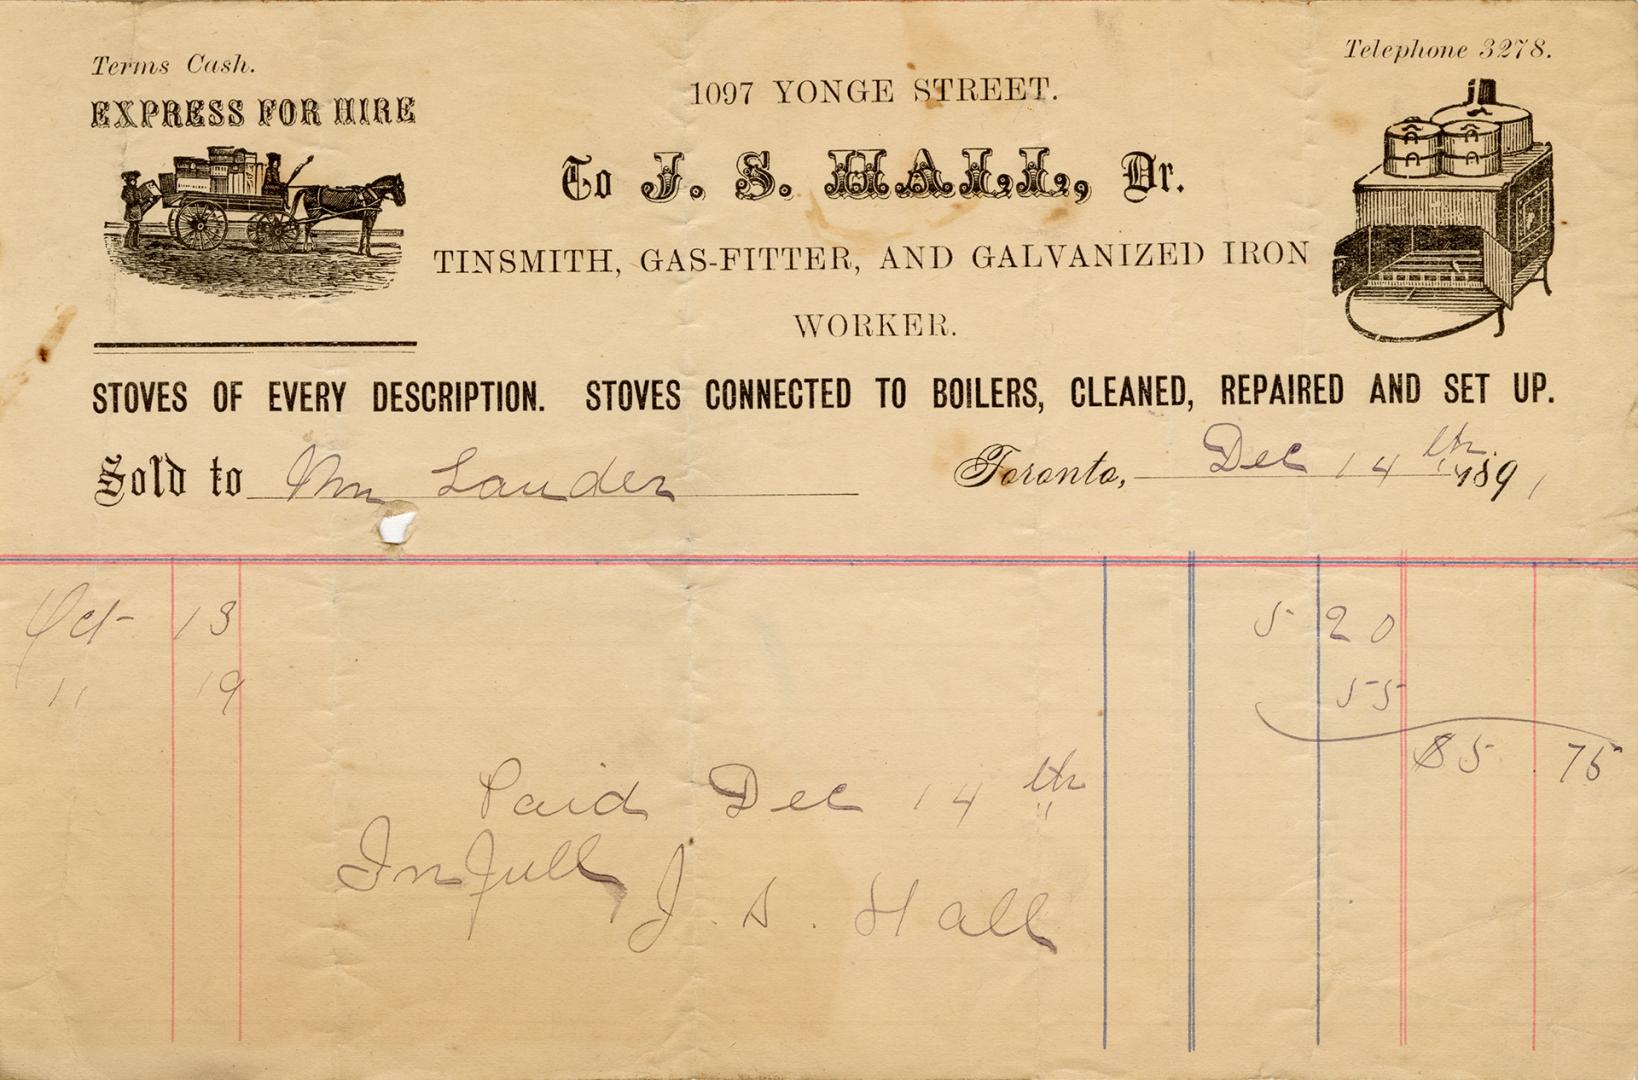 Terms Cash.
Telephone 3278.
EXPRESS FOR HIRE
1097 YONGE STREET.
To J. S. HALL, Dr.
TINSMITH, GAS-FITTER, AND GALVANIZED IRON
WORKER.
STOVES OF EVERY DESCRIPTION. STOVES CONNECTED TO BOILERS, CLEANED, REPAIRED AND SET UP.
Sold to Mr Lauder Toronto, Dec 14th 1891
Oct 13 5 20
11 19 55
$5 75
Paid Dec 14th
In full J. S. Hall